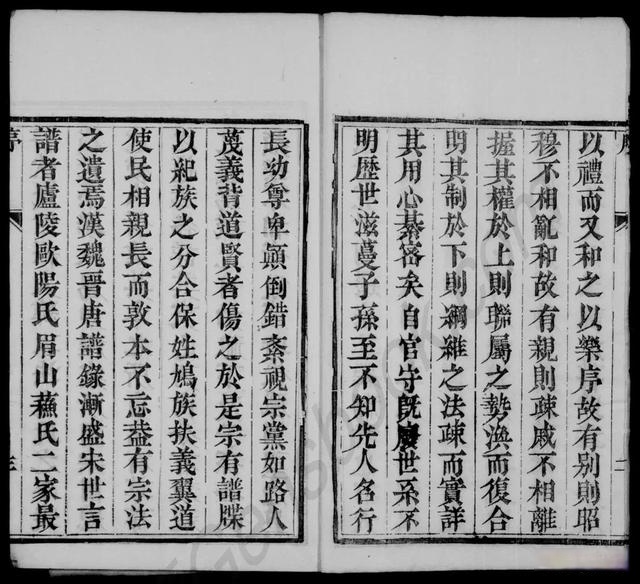 以禮而又和之以樂序故有别則昭
穆不相亂和故有親則疎戚不相離
握其權於上則聯屬之勢渙而復合
明其制於下則綱維之法疎而實詳
其用心綦密矣自官守既廢世系不
明歷世滋蔓子孫至不知先人名行
長幼尊卑顚倒錯紊視宗黨如路人
蔑義背道賢者傷之於是宗有譜牒
以紀族之分合保姓鳩族扶義翼道
使民相親長而敦本不忘葢有宗法
之遺焉漢魏晉唐譜錄漸盛宋世言
譜者廬陵歐陽氏眉山蘇氏二家最
序
三